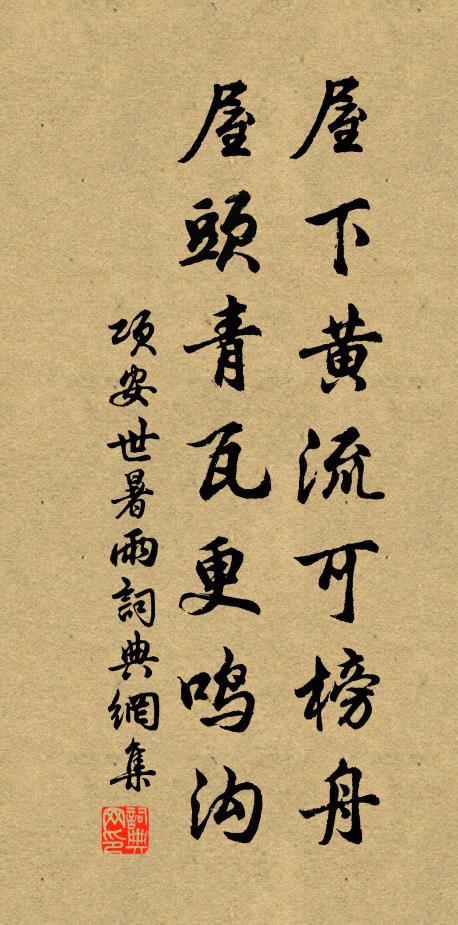 屋下黄流可榜舟
屋頭青瓦更鸣沟
项安世暑雨詞典網集
詞典网印